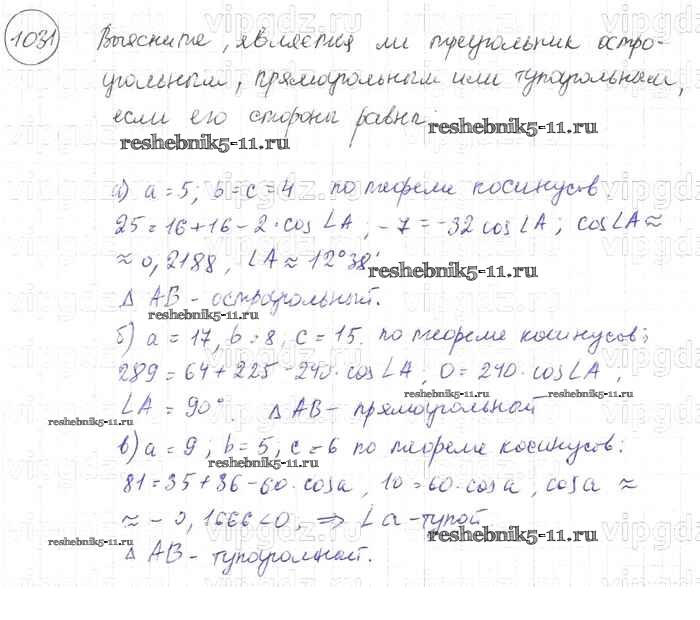 1031 Выясните, является ли треугольник остро-
угольным, прямоугольным или тупоугольным,
если его стороны равны:
reshebnik5-11.ru reshebnik5-11.ru
а) a = 5; b = c = 4 по теореме косинусов.
25 = 16 + 16 - 2 · cos ∠A; -7 = -32 cos ∠A; cos ∠A ≈
≈ 0,2188, ∠A ≈ 12°38'
reshebnik5-11.ru
Δ AB - остроугольный.
reshebnik5-11.ru
б) a = 17, b = 8, c = 15. по теореме косинусов;
289 = 64 + 225 - 240 · cos ∠A; 0 = 240 · cos ∠A,
∠A = 90°. Δ AB - прямоугольный
reshebnik5-11.ru reshebnik5-11.ru
в) a = 9; b = 5; c = 6 по теореме косинусов:
reshebnik5-11.ru
81 = 35 + 36 - 60 · cos a, 10 = 60 · cos a, cos a ≈
≈ - 0,1666 < 0, ⇒ ∠a - тупой
reshebnik5-11.ru reshebnik5-11.ru
Δ AB - тупоугольный.